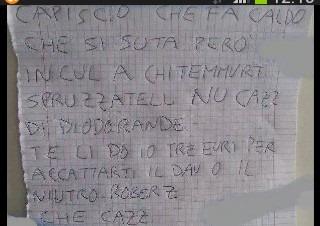 CAPISCIO CHE FA CALDO
CHE SI SUTA PERO'
IN CUL A CHITEMMURT
SPRUZZATELL NU CAZZ
DI DIODORANDE
TE LI DO IO TRE EURI PER
ACCATTARTI IL DAV O IL
NIUTRO ROBERZ
CHE CAZZ